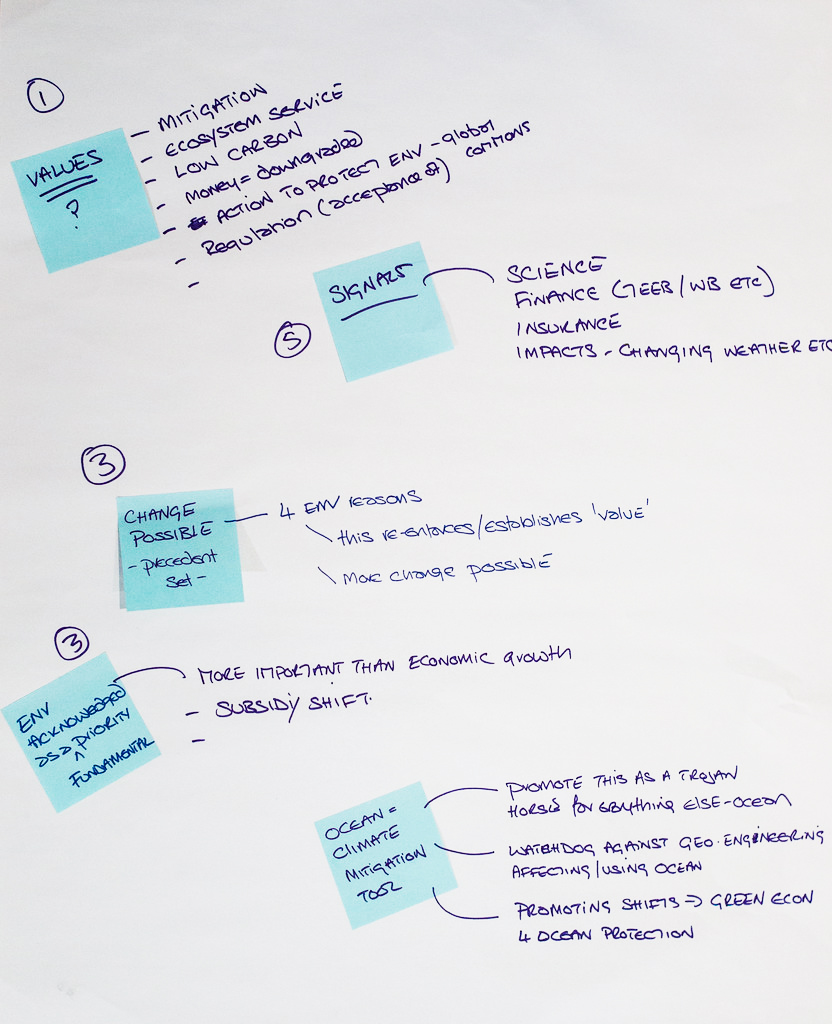 1
VALUES
?
- MITIGATION
- ECOSYSTEM SERVICE
- LOW CARBON
- MONEY = downgraded
- ACTION TO PROTECT ENV - global commons
- Regulation (acceptance of)
-
5
SIGNALS
SCIENCE
FINANCE (TEEB/WB ETC)
INSURANCE
IMPACTS - CHANGING WEATHER ETC
3
CHANGE
POSSIBLE
- precedent
set -
4 ENV reasons
\ this re-enforces/establishes 'value'
\ More change possible
3
ENV
ACKNOWLEDGED
as a PRIORITY
^
FUNDAMENTAL
MORE IMPORTANT THAN ECONOMIC growth
- SUBSIDY SHIFT.
-
OCEAN =
CLIMATE
MITIGATION
TOOL
PROMOTE THIS AS A TROJAN
HORSE for everything ELSE-OCEAN
WATCHDOG AGAINST GEO-ENGINEERING
AFFECTING/USING OCEAN
PROMOTING SHIFTS => GREEN ECON
4 OCEAN PROTECTION